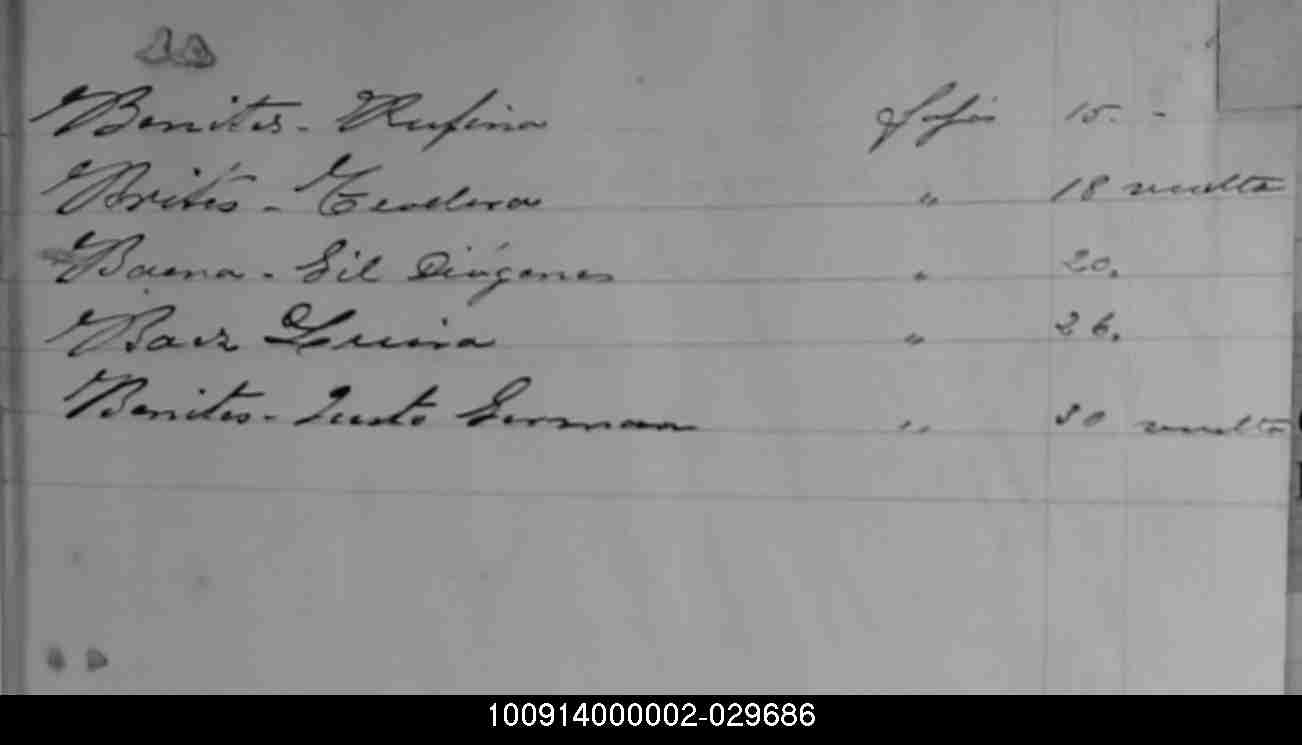 Benites - Rufina fojas 15. -
Brités - Teodora " 18 vuelta
Baena - Gil Diógenes " 20.
Baez Luisa " 26.
Benites - Justo German " 30 vuelta
100914000002-029686